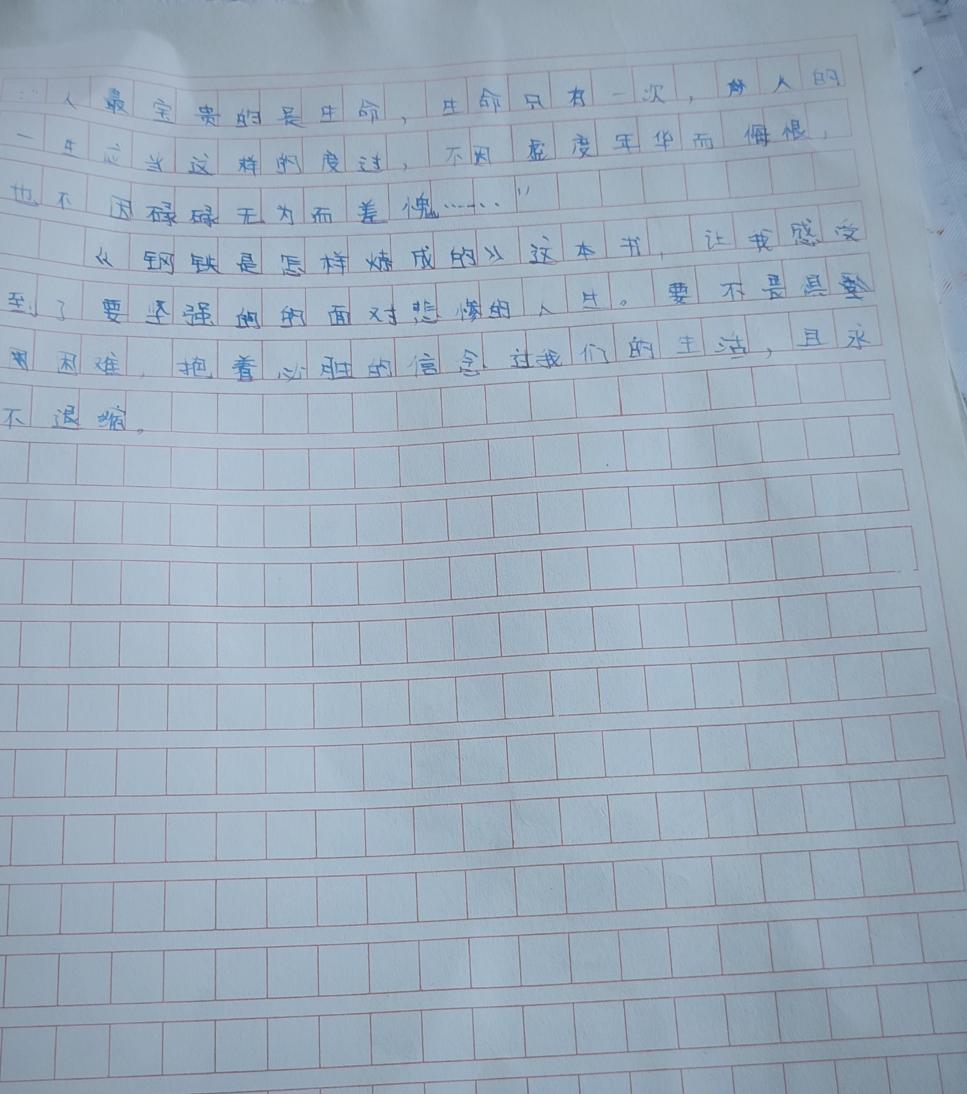 ：“人最宝贵的是生命，生命只有一次，人的
一生应当这样的度过，不因虚度年华而悔恨，
也不因碌碌无为而羞愧……”
《钢铁是怎样炼成的》这本书，让我感受
至了要坚强的的面对悲惨的人生。要不畏惧
困难，抱着必胜的信念过我们的生活，且永
不退缩。